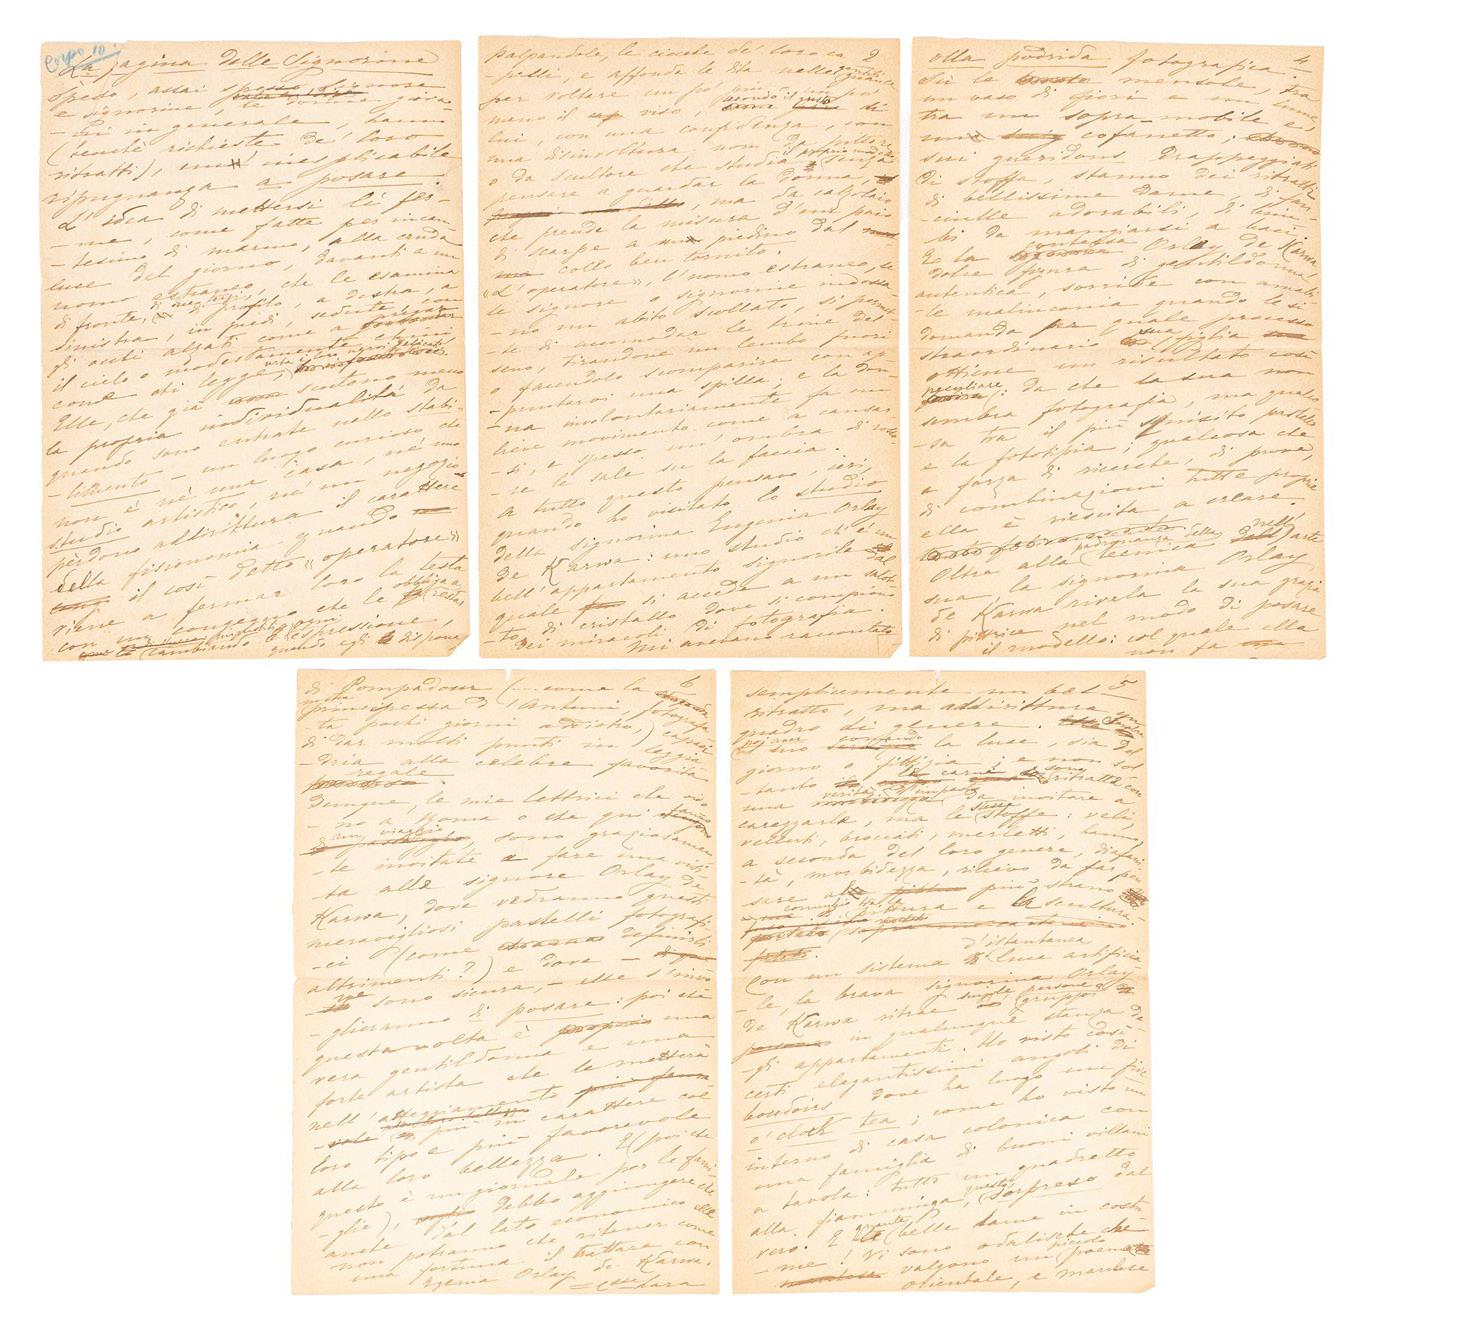 Corpo 10.
La pagina delle Signorine
Spesso, assai spesso
e signorine, le donne giova-
-ni in generale hanno
(benchè richieste de' loro
ritratti), un' inesplicabile
ripugnanza a posare.
L'idea di mettersi lì fer-
-me, come fatte per incan-
-tesimo di marmo, alla cruda
luce del giorno, davanti a un
uomo estraneo, che le esamina
di fronte, di profilo, a destra, a
sinistra, in piedi, sedute, con
gli occhi alzati come a pregare
il cielo o modestamente chini
come chi legge,
Elle, che già sentono meno
la propria individualità da
quando sono entrate nello stabi-
-limento - un luogo curioso che
non è nè una casa, nè uno
studio artistico, nè un negozio -
perdono addirittura il carattere
della fisionomia quando
il così detto "operatore"
viene a fermar loro la testa
con un congegno che le obbliga a restar
espressione,
quando egli dispone,
2
palpandole, le ciocche de' loro ca
-pelli, e affonda le dita nelle
per voltare un po' più, un po'
meno il viso, secondo il gusto di
lui, con una confidenza, con
una disinvoltura non da pittore
o da scultore che studia
pensare a guardar la donna,
ma da calzolaio
che prende la misura d'un paio
di scarpe a un piedino dal
collo ben tornito.
"L'operatore", l'uomo estraneo, se
le signore o signorine indossa-
-no un abito scollato, si permet
-te di accomodar le trine del
seno, tirandone un lembo fuori
o facendolo scomparire con ap
-puntarvi una spilla; e la don
-na involontariamente fa un
lieve movimento come a cansar
-si, e spesso un'ombra di rosso
-re le sale su la faccia.
A tutto questo pensavo, ieri,
quando ho visitato lo studio
della signorina Eugenia Orlay
de Karwa: uno studio ch'è un
bell'appartamento signorile dal
quale si accede a un salot-
-to di cristallo dove si compiono
dei miracoli di fotografia.
Mi avevano raccontato
4
olla podrida fotografica.
Su le mensole, fra
un vaso di fiori e un lume
tra un sopra-mobile e
un cofanetto;
sui guéridons drappeggiati
di stoffa, stanno dei ritratti
di bellissime dame, di fan
-ciulle adorabili, di bim-
bi da mangiarsi a baci.
E la contessa Orlay de Karwa,
dolce figura di gentildonna
autentica, sorride con amabi-
-le malinconia quando le si
domanda per quale processo
straordinario sua figlia
ottiene un risultato così
peculiare: da che la sua non
sembra fotografia, ma qualco
-sa tra il più squisito pastello
e la fototipia; qualcosa che
a forza di ricerche, di prove,
di combinazioni tutte proprie
ella è riescita a creare.
Oltre alla padronanza della tecnica nell'arte
sua, la signorina Orlay
de Karwa rivela la sua grazia
di pittrice nel modo di posare
il modello: col quale ella
non fa
6
di Pompadour (... come la
principessa d'Antuni, fotografa
-ta pochi giorni addietro,) capaci
di dar molti punti in leggia-
-dria alla celebre favorita
regale
Dunque, le mie lettrici che vivo
-no a Roma o che qui fanno
un viaggio, sono graziosamen
-te invitate a fare una visi-
-ta alle signore Orlay de
Karwa, dove vedranno questi
meravigliosi pastelli fotografi-
-ci (come definirli
altrimenti?) e dove -
ne sono sicura, - elle s'invo
-glieranno di posare: poi chè
questa volta è una
vera gentildonna e una
forte artista che le metterà
nell'atteggiamento
più in carattere col
loro tipo e più favorevole
alla loro bellezza. E (poi che
questo è un giornale per le fami-
-glie), debbo aggiungere che
anche dal lato economico elle
non potranno che ritener come
una fortuna il trattare con
Egenia Orlay de Karwa.
= Csse Lara
5
semplicemente un bel
ritratto, ma addirittura un
quadro di genere.
la luce, sia del
giorno o fittizia; e non sol
-tanto le carni sono ritratte con
una verità d'impasto da invitare a
carezzarle, ma le stesse stoffe: veli,
velluti, broccati, merletti, hanno
a seconda del loro genere, diafani
-tà, morbidezza, rilievo da far pen
-sare al più strano
connubio tra la pittura e la scultura.
Con un sistema d'istantanea luce artificia
-le, la brava signorina Orlay
de Karwa ritrae singole persone o gruppi
in qualunque stanza de
-gli appartamenti. Ho visto così
certi elegantissimi angoli di
boudoirs dove ha luogo un five
o'clock tea; come ho visto un
interno di casa colonica con
una famiglia di buoni villani
a tavola: tutto un quadretto
alla fiamminga, questo, sorpreso dal
vero. E quante belle dame in costu
-me! Vi sono odalische che
valgono un piccolo poema
orientale, e marchese